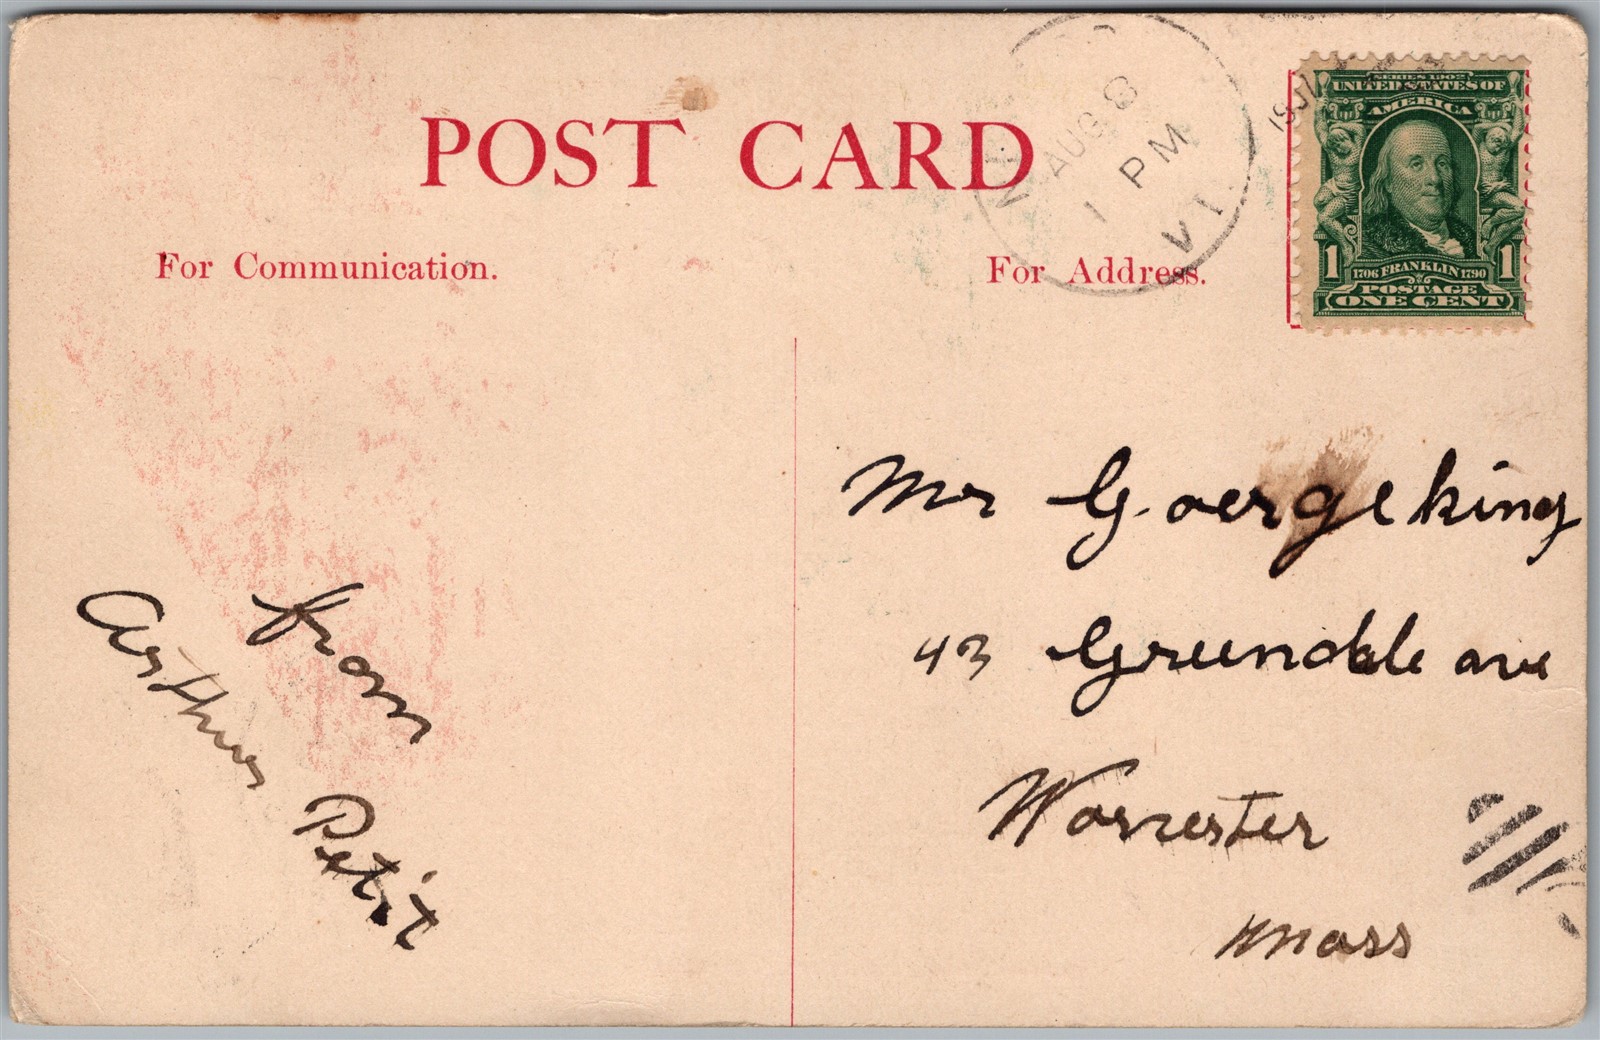 POST CARD
AUG 8
1 PM
VT.
SERIES 1902
UNITED STATES OF
AMERICA
1 1
1706 FRANKLIN 1790
POSTAGE
ONE CENT
For Communication.
For Address.
from
Arthur Petit
Mr Goerge king
43 Grundle ave
Worcester
Mass